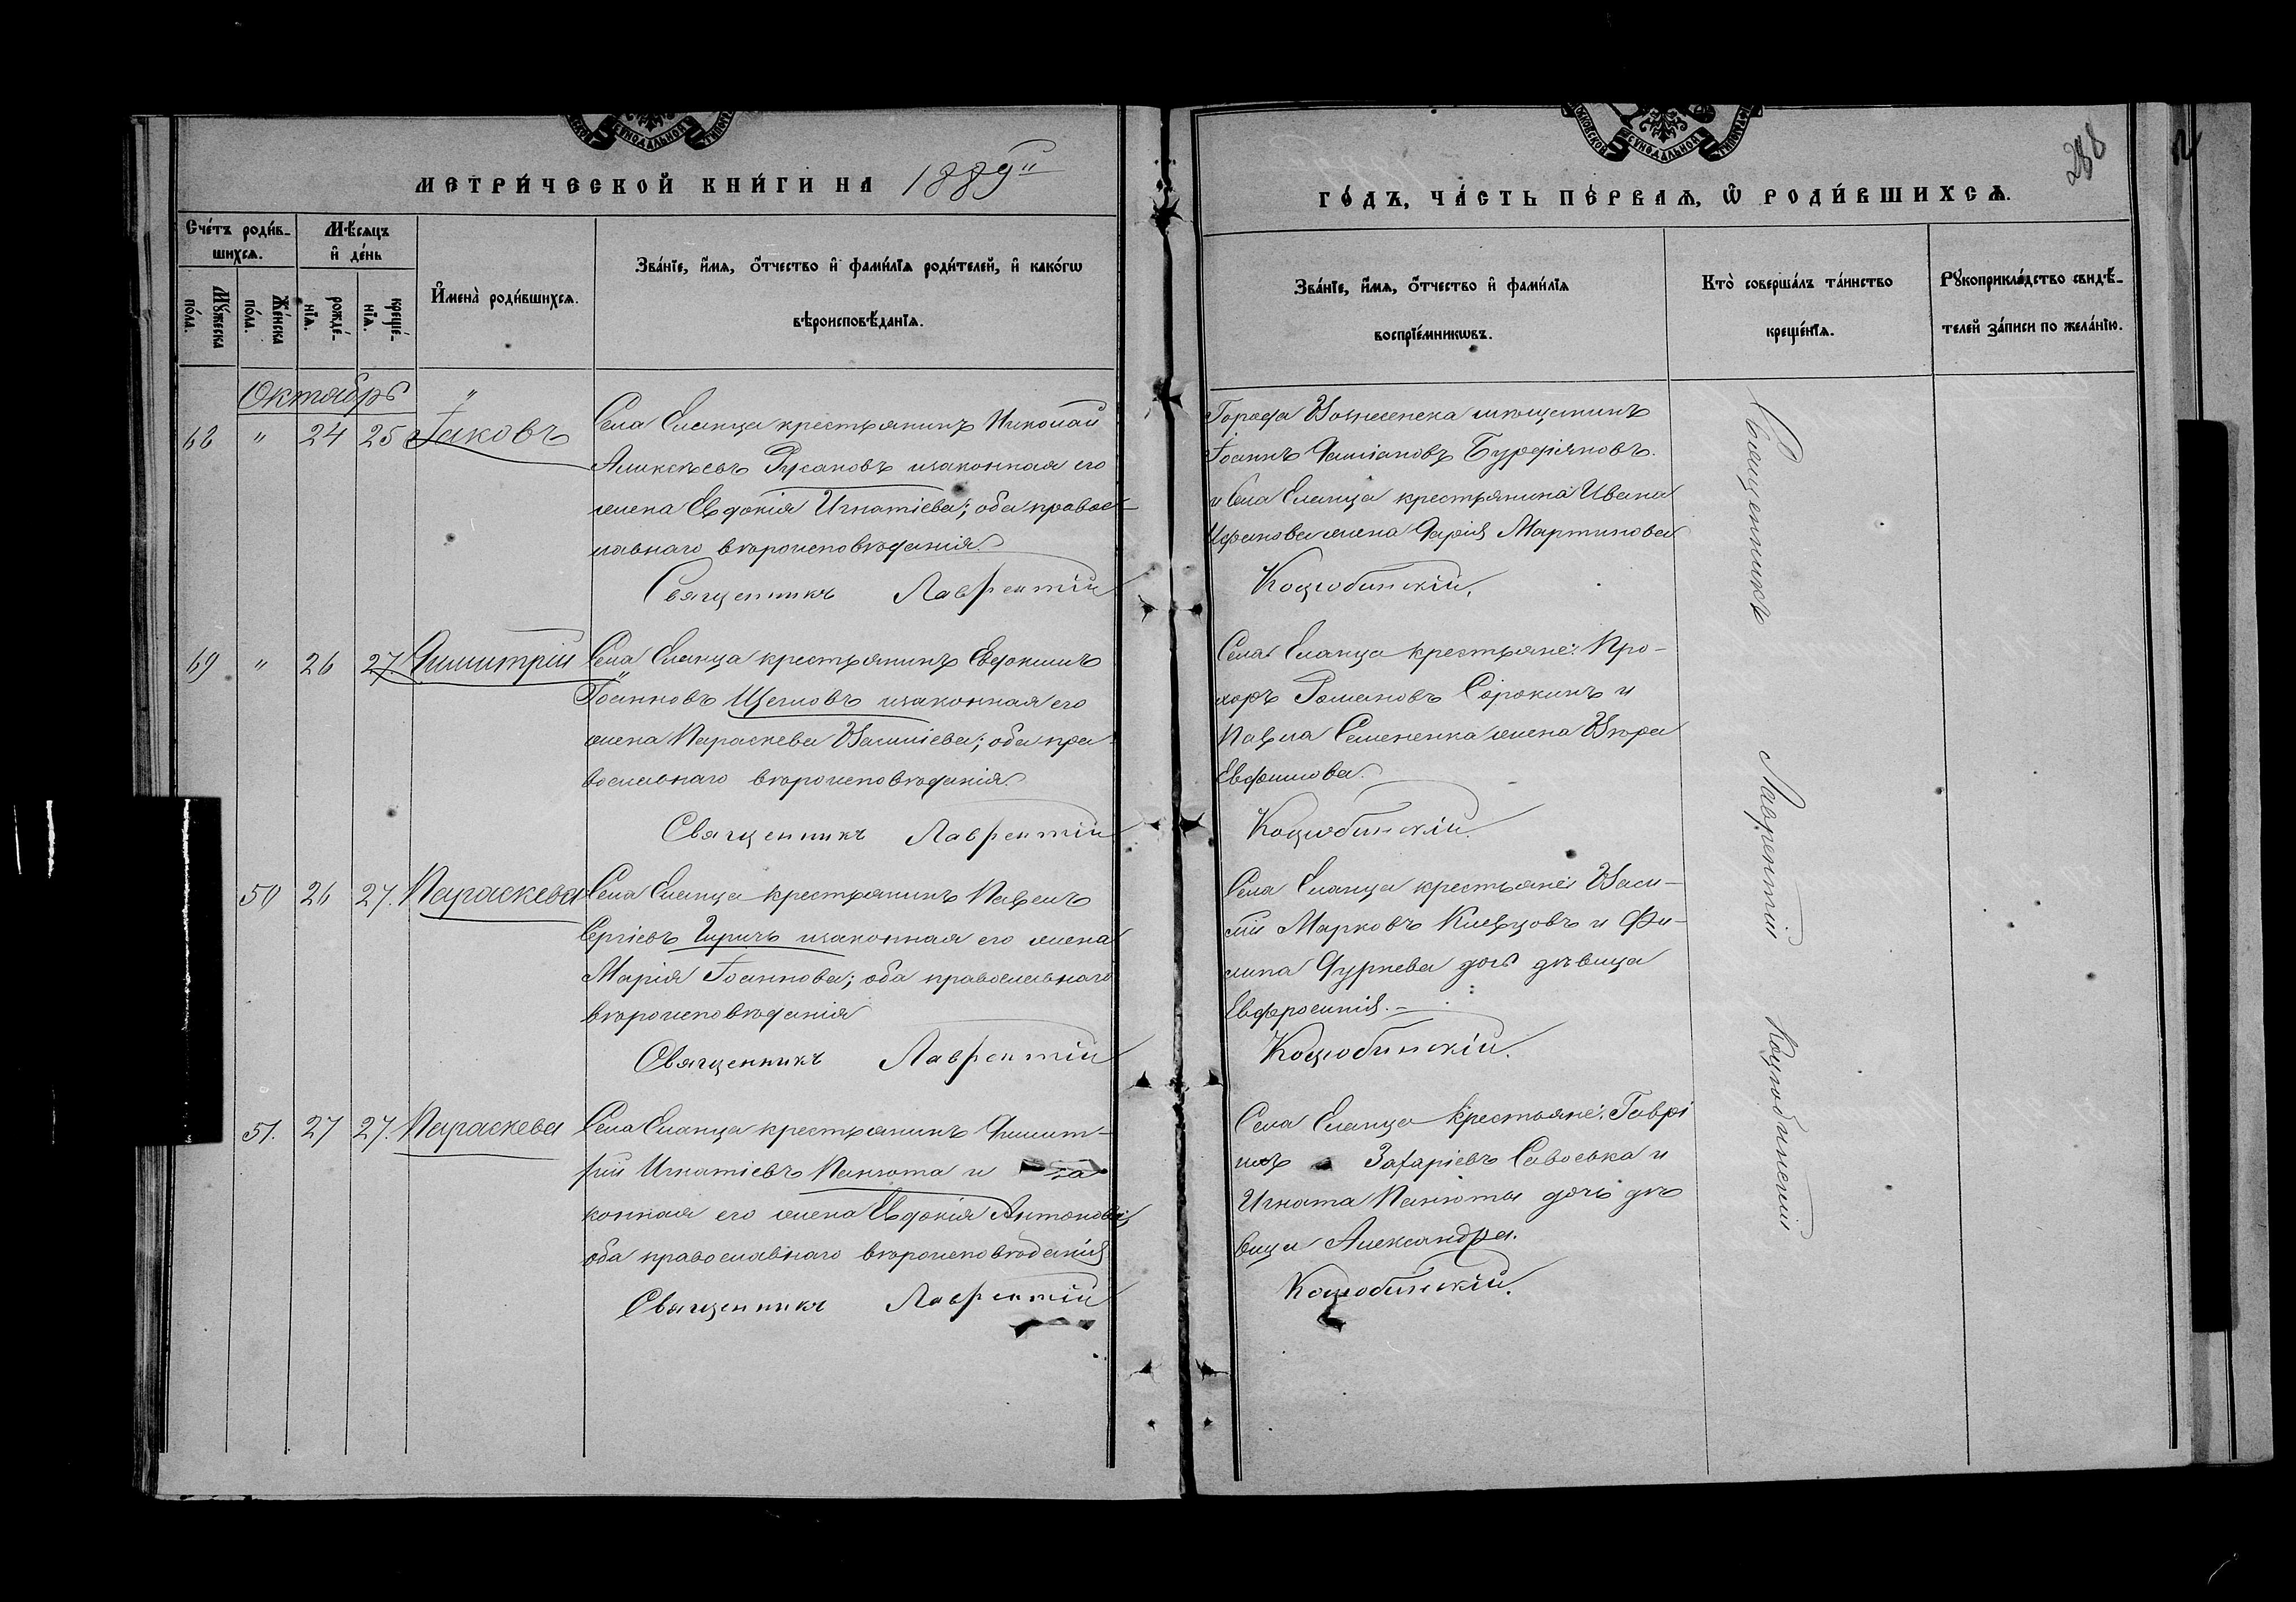 МЕТРИ́ЧЕСКОЙ КНИ́ГИ НА 1889й
ГО́ДЪ, ЧА́СТЬ ПЕ́РВАѦ, Ѿ РОДИ́ВШИХСѦ.
288
Сче́тъ роди́в-
шихсѧ.
Мѣ́сѧцъ
и҆ де́нь
Мꙋ́жеска
по́ла.
Же́нска
по́ла.
рожде́-
нїѧ.
креще́-
нїѧ.
И҆мена̀ роди́вшихсѧ.
Зва́нїе, и҆́мѧ, ѻ҆́тчество и҆ фами́лїѧ роди́телей, и҆ како́гѡ
вѣроисповѣ́данїѧ.
Зва́нїе, и҆́мѧ, ѻ҆́тчество и҆ фами́лїѧ
воспрїе́мникѡвъ.
Кто̀ соверша́лъ та́инство
креще́нїѧ.
Рꙋкоприкла́дство свидѣ́-
телей за́писи по жела́нїю.
Октябрь
68 " 24 25 Іаковъ
Села Еланца крестьянинъ Николай
Алексѣевъ Русановъ и законная его
жена Евдокія Игнатіева; оба правос-
лавнаго вѣроисповѣданія.
Священникъ Лаврентій
Города Вознесенска мѣщанинъ
Іоаннъ
и села Еланца крестьянина Ивана
жена Дарія Мартинова
Коцюбинскій.
69 " 26 27. Димитрій
Села Еланца крестьянинъ Евдокимъ
Іоанновъ Щегловъ и законная его
жена Параскева Василіева; оба пра-
вославнаго вѣроисповѣданія.
Священникъ Лаврентій
Села Еланца крестьяне: Про-
хоръ Романовъ Сорокинъ и
Павла Семененка жена Вѣра
Евфимова.
Коцюбинскій.
50 26 27. Параскева
Села Еланца крестьянинъ Павелъ
Сергіевъ и законная его жена
Марія Іоаннова; оба православнаго
вѣроисповѣданія
Священникъ Лаврентій
Села Еланца крестьяне: Васи-
лій Марковъ Кивцовъ и Фи-
липа дочь дѣвица
Евфросинія.
Коцюбинскій.
51. 27 27. Параскева
Села Еланца крестьянинъ Димит-
рій Игнатіевъ Панюта и за
конная его жена Евдокія Антонова;
оба православнаго вѣроисповѣданія
Священникъ Лаврентій
Села Еланца крестьяне: Гаврі
илъ Захаріевъ Савоська и
Игната Панюты дочь дѣ
вица Александра.
Коцюбинскій.
Священникъ Лаврентій Коцюбинскій